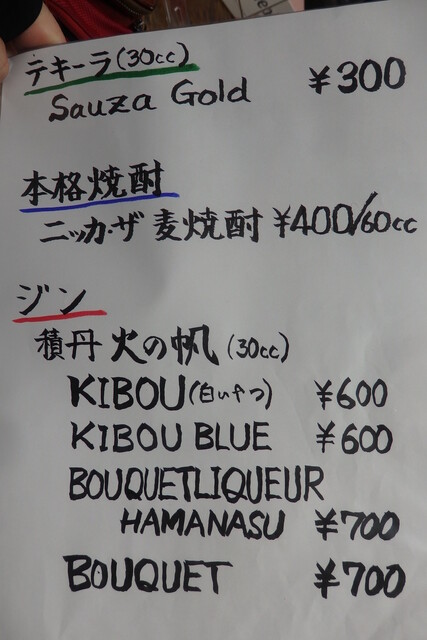 テキーラ(30cc)
Sauza Gold ¥300
本格焼酎
ニッカ・ザ 麦焼酎 ¥400/60cc
ジン
積丹 火の帆 (30cc)
KIBOU(白いやつ) ¥600
KIBOU BLUE ¥600
BOUQUETLIQUEUR
HAMANASU ¥700
BOUQUET ¥700